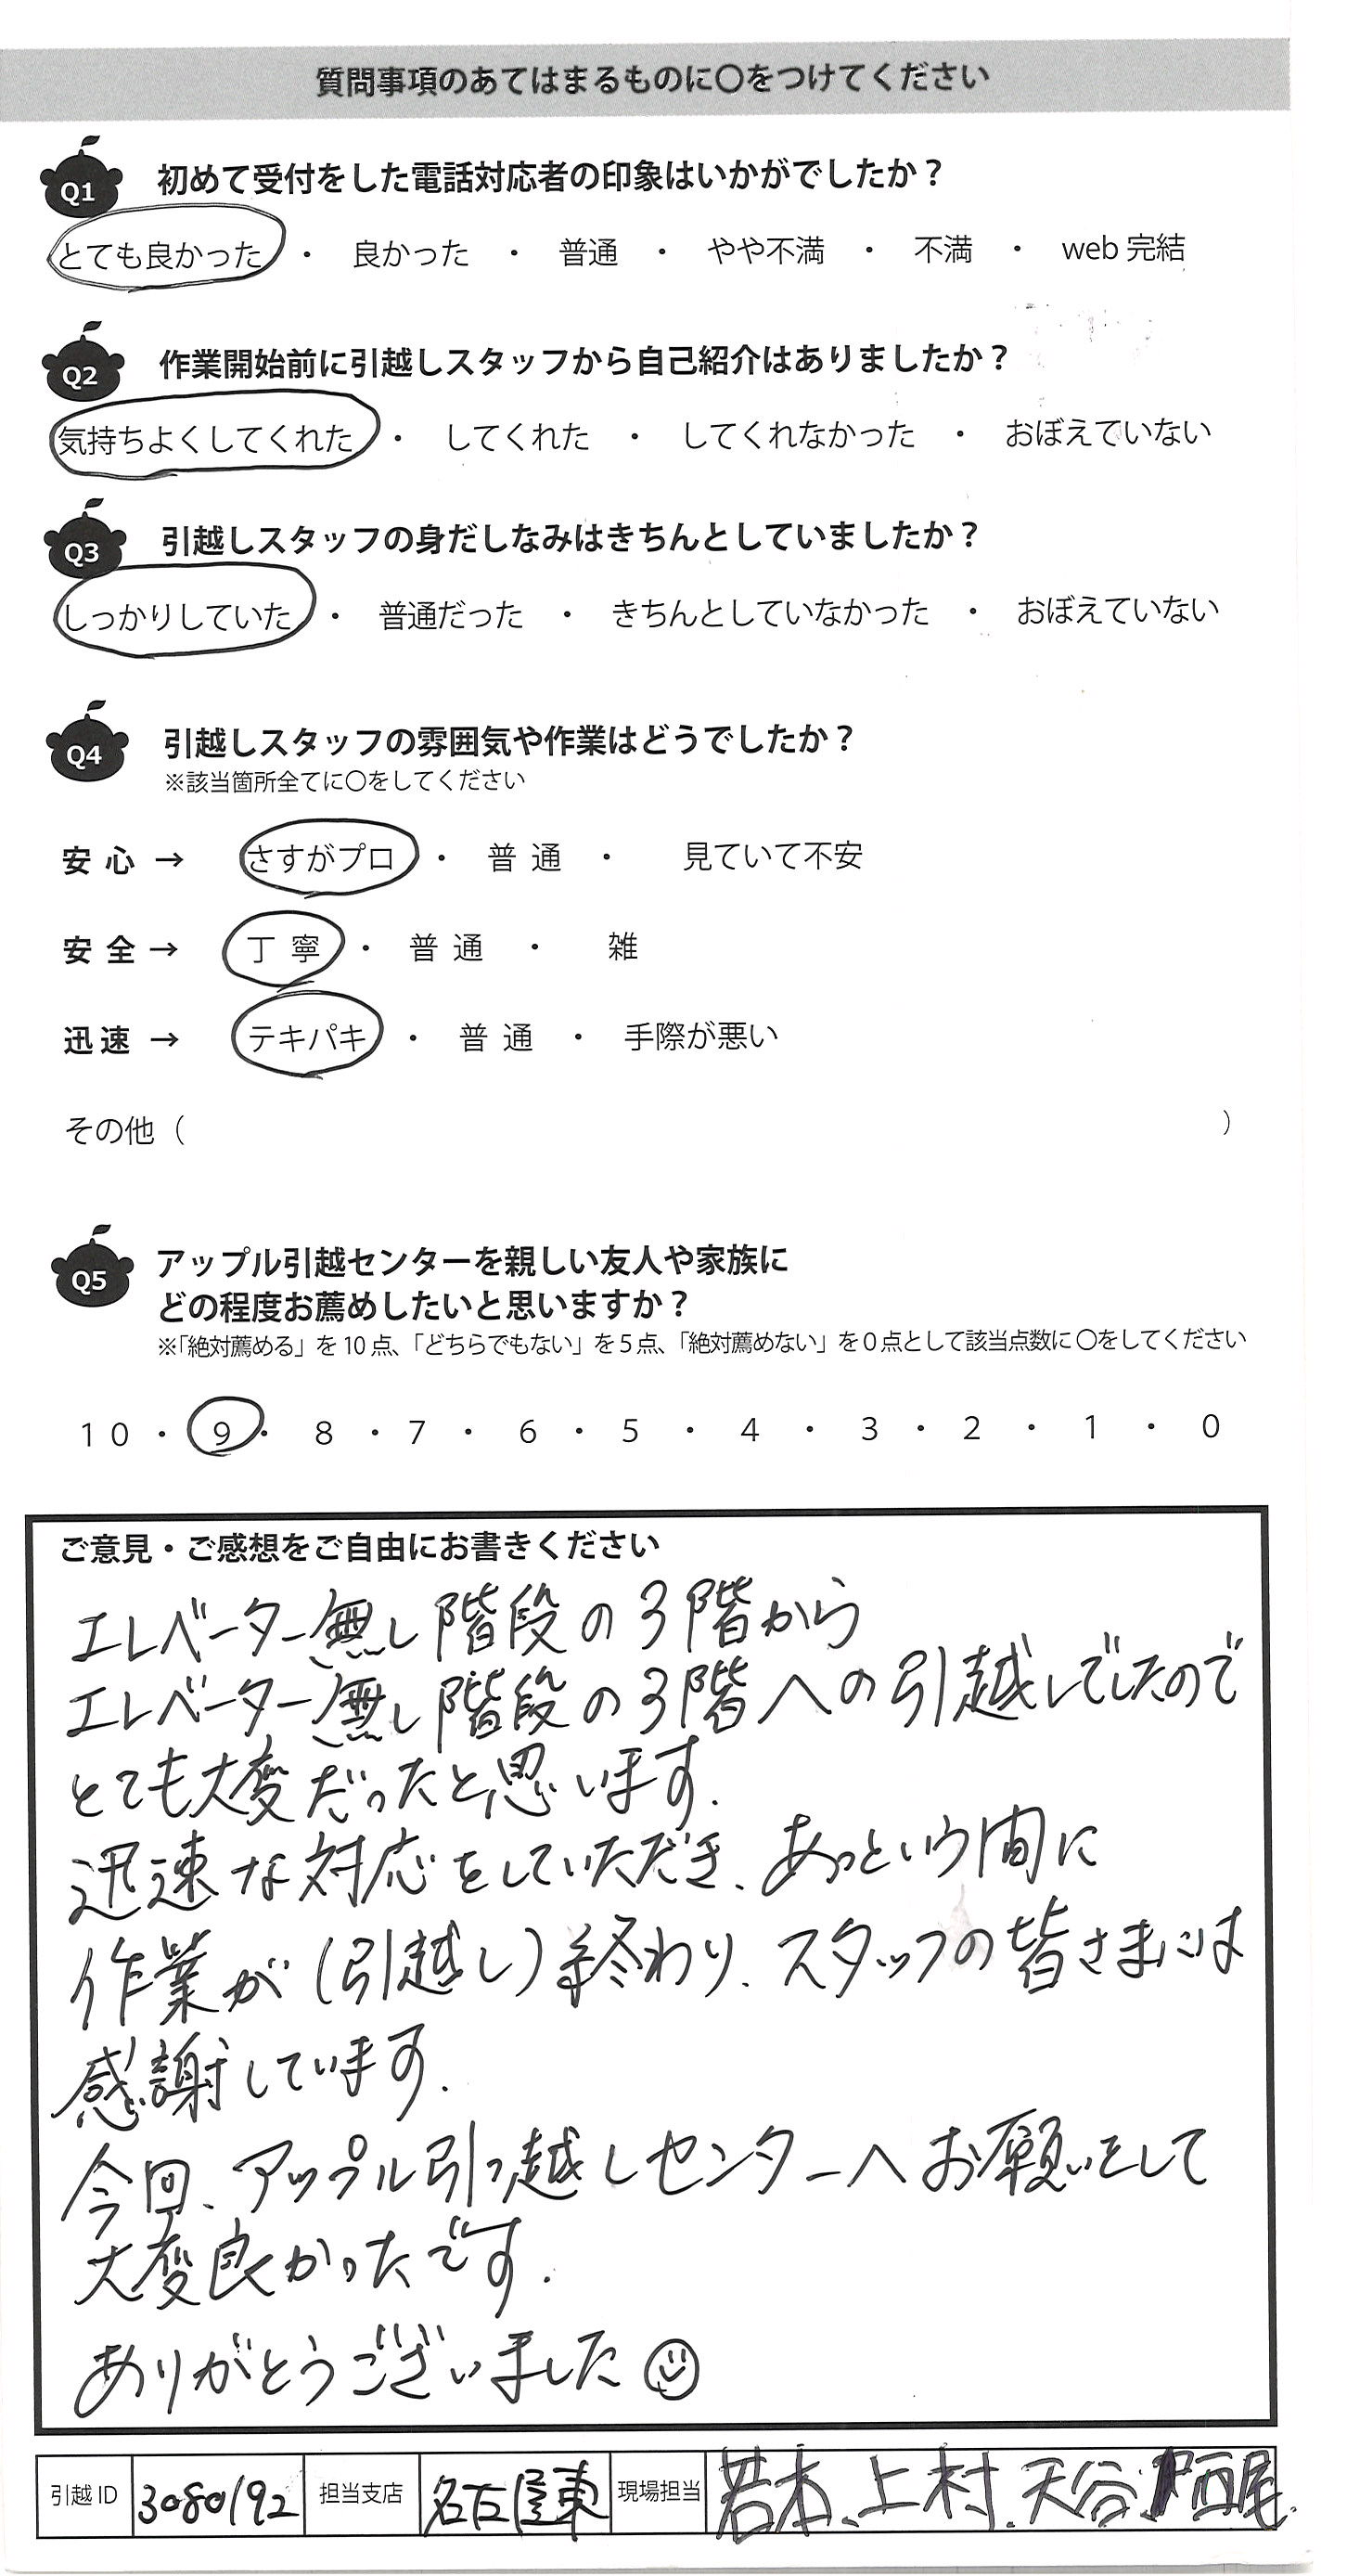 質問事項のあてはまるものに〇をつけてください
Q1 初めて受付をした電話対応者の印象はいかがでしたか？
とても良かった ・ 良かった ・ 普通 ・ やや不満 ・ 不満 ・ web 完結
Q2 作業開始前に引越しスタッフから自己紹介はありましたか？
気持ちよくしてくれた ・ してくれた ・ してくれなかった ・ おぼえていない
Q3 引越しスタッフの身だしなみはきちんとしていましたか？
しっかりしていた ・ 普通だった ・ きちんとしていなかった ・ おぼえていない
Q4 引越しスタッフの雰囲気や作業はどうでしたか？
※該当箇所全てに〇をしてください
安心 → さすがプロ ・ 普通 ・ 見ていて不安
安全 → 丁寧 ・ 普通 ・ 雑
迅速 → テキパキ ・ 普通 ・ 手際が悪い
その他（ ）
Q5 アップル引越センターを親しい友人や家族に
どの程度お薦めしたいと思いますか？
※「絶対薦める」を10点、「どちらでもない」を5点、「絶対薦めない」を0点として該当点数に〇をしてください
10 ・ 9 ・ 8 ・ 7 ・ 6 ・ 5 ・ 4 ・ 3 ・ 2 ・ 1 ・ 0
ご意見・ご感想をご自由にお書きください
エレベーター無し階段の3階から
エレベーター無し階段の3階への引越しでしたので
とても大変だったと思います.
迅速な対応をしていただき、あっという間に
作業が(引越し)終わり、スタッフの皆さまには
感謝しています.
今回、アップル引っ越しセンターへお願いをして
大変良かったです.
ありがとうございました
引越ID 3080192 担当支店 名古屋東 現場担当 若本、上村、天谷、西尾.